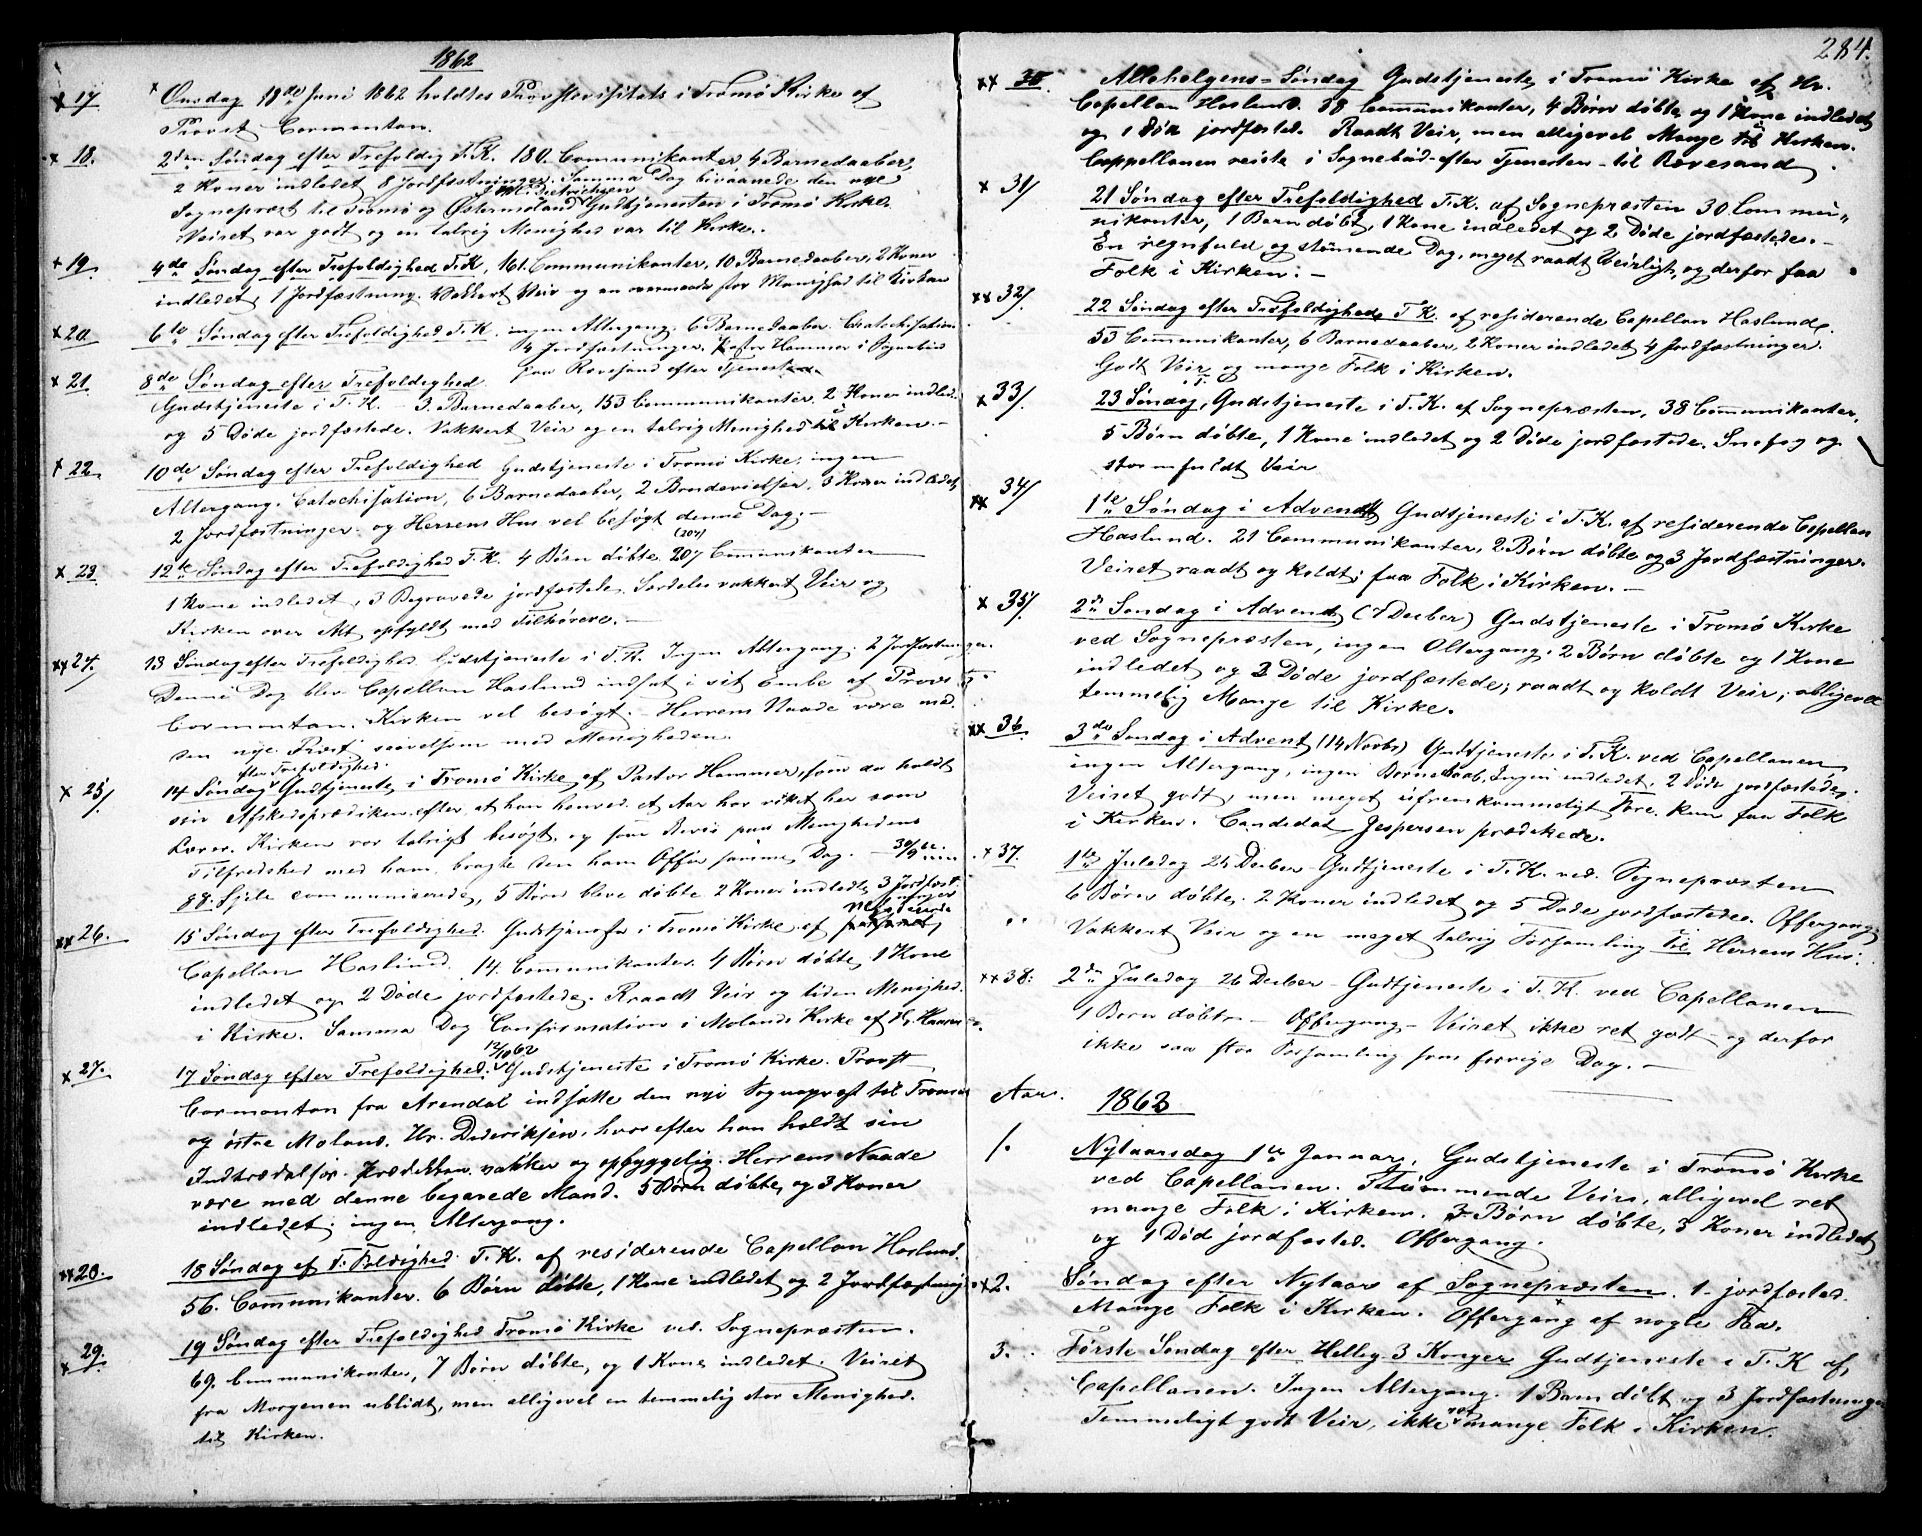 1862
x 17 x Onsdag 18de Juni 1862 holdtes Provstevisitats i Tromø Kirke af
Provst Cormontan.
x 18. 2den Søndag efter Trefoldig T.K. 180. Communikanter, 4 Barnedaaber,
2 Koner indledet 8 Jordfæstninger. Samme Dag bivaanede den nye
Dietrichsen
Sognepræst til Tromø og Østermoland Gudstjenesten i Tromø Kirke.
Veiret var godt og en talrig Menighed var til Kirke.
+ 19. 4de Søndag efter Trefoldighed T.K, 161. Communikanter, 10 Barnedaaber, 2 Koner
indledet, 1 Jordfæstning. Vakkert Veir og en overmaade stor Menighed til Kirken
x 20 6te Søndag efter Trefoldighed T.K. ingen Altergang. 6 Barnedaaber. Catechisation
4 Jordfæstninger. Pastor Hammer i Sognebud
paa Revesand efter Tjenesten.
x 21. 8de Søndag efter Trefoldighed
Gudstjeneste i T.K. - 3. Barnedaaber, 153 Communikanter, 2 Koner indled.
og 5 Døde jordfæstede. Vakkert Veir og en talrig Menighed til Kirken.-
x 22 10de Søndag efter Trefoldighed Gudstjeneste i Tromø Kirke, ingen
Altergang. Catechisation, 6 Barnedaaber, 2 Brudevielser, 3 Koner indledet,
2 Jordfæstninger. og Herrens Hus vel besøgt denne Dag.-
(207)
x 23 12te Søndag efter Trefoldighed T.K. 4 Børn døbte, 207 Communikanter
1 Kone indledet, 3 Begravede jordfæstede. Særdeles vakkert Veir og
Kirken over Alt opfyldt med Tilhørere.-
xx 24. 13 Søndag efter Trefoldighed. Gudstjeneste i T.K. Ingen Altergang. 2 Jordfæstninger.
Denne Dag blev Capellan Haslund indsat i sit Embe af Provst
Cormontan. Kirken vel besøgt. - Herrens Naade være med
den nye Præst saavelsom med Menigheden.
efter Trefoldighed
x 25/ 14 Søndag Gudstjeneste i Tromø Kirke af Pastor Hammer, som da holdt
sin Afskedsprædiken efter, at han henved et Aar har virket her som
Lærer. Kirken var talrigt besøgt, og som Bevis paa Menighedens
Tilfredshed med ham, bragte den ham Offer samme Dag.
88. Sjele communicerede, 5 Børn bleve døbte 2 Koner indledte 3 Jordfæst-
ninger
residerende
xx 26. 15 Søndag efter Trefoldighed. Gudstjeneste i Tromø Kirke af
Capellan Haslund. 14. Communikanter. 4 Børn døbte, 1 Kone
indledet og 2 Døde jordfæstede. Raadt Veir og liden Menighed.
i Kirke. Samme Dag Confirmation i Molands Kirke af Hr. Hammer.
12/10 62
x 27. 17 Søndag efter Trefoldighed. Gudstjeneste i Tromø Kirke. Provst
Cormontan fra Arendal indsatte den nye Sognepræst til Tromø
og østre Moland. Hr. Dederiksen, hvorefter han holdt sin
Indtrædelses-Prædiken, vakker og opbyggelig. Herrens Naade
være med denne begavede Mand. 5 Børn døbte, og 3 Koner
indledet; ingen Altergang.
xx 28. 18 Søndag af T.Foldighed T.K. af residerende Capellan Haslund.
56. Communikanter. 6 Børn døbte, 1 Kone indledet og 2 Jordfæstninger
x 29. 19 Søndag efter Trefoldighed Tromø Kirke ved Sognepræsten.
69. Communikanter, 7 Børn døbte, og 1 Kone indledet. Veiret
fra Morgenen ublidt, men alligevel en temmelig stor Menighed.
til Kirken.
284.
xx 30. Allehelgens-Søndag Gudstjeneste i Tromø Kirke af Hr.
Capellan Haslund. 58 Communikanter, 4 Børn døbte og 1 Kone indledet
og 1 Død jordfæsted. Raadt Veir, men alligevel Mange til Kirken.
Cappellanen reiste i Sognebud efter Tjenesten - til Revesand.
x 31/ 21 Søndag efter Trefoldighed T.K. af Sognepræsten 30 Commu-
nikanter, 1 Barn døbt, 1 Kone indledet og 2 Døde jordfæstede.-
En regnfuld og stormende Dag, meget raadt Veirligt, og derfor faa
Folk i Kirken.-
xx 32/. 22 Søndag efter Trefoldighed T K. af residerende Capellan Haslund.
53 Communikanter, 6 Barnedaaber, 2 Koner indledet 4 Jordfæstninger.
Godt Veir og mange Folk i Kirken.
x 33/. 23 Søndag, Gudstjeneste i T.K. af Sognepræsten, 38 Communikanter,
5 Børn døbte, 1 Kone indledet og 2 Døde jordfæstede. Snefog og
stormfuldt Veir
xx 34/ 1te Søndag i Advendt Gudtjeneste i T.K. af residerende Capellan
Haslund. 21 Communikanter, 2 Børn døbte og 3 Jordfæstninger.
Veiret raadt og koldt; faa Folk i Kirken.-
x 35/. 2den Søndag i Advend (7 Decber) Gudstjeneste i Tromø Kirke
ved Sognepræsten, ingen Altergang. 2 Børn døbte og 1 Kone
indledet og 3 Døde jordfæstede; raadt og koldt Veir; alligevel
temmelig Mange til Kirke.
xx 36 3die Søndag i Advent (14 Novbr) Gudtjeneste i T.K. ved Capellanen
ingen Altergang, ingen Barnedaab, Ingen indledet, 2 Døde jordfæstede.
Veiret godt, men meget ufremkommeligt Føre. kun faa Folk
i Kirken. Candidat Jespersen prædikede.
x 37. 1ste Juledag 25 Decber Gudtjeneste i T.K. ved Sognepræsten
6 Børn døbte. 2 Koner indledet og 5 Døde jordfæstede. Offergang,
Vakkert Veir og en meget talrig Forsamling til Herrens Hus.
xx 38: 2den Juledag 26 Decber - Gudtjeneste i T.K. ved Capellanen
1 Barn døbt - Offergang - Veiret ikke ret godt - og derfor
ikke saa stor Forsamling som forrige Dag.-
Aar. 1863
1. Nytaarsdag 1ste Januar, Gudstjeneste i Tromø Kirke
ved Capellanen. Stormmende Veir, alligevel ret
mange Folk i Kirken. 3 Børn døbte, 3 Koner indledet
og 1 Død jordfæsted. Offergang.
x 2. Søndag efter Nytaar af Sognepræsten. 1 jordfæsted.
Mange Folk i Kirken. Offergang af nogle Faa.
3. Første Søndag efter Hellig 3 Konger Gudtjeneste i T.K af,
Capellanen. Ingen Altergang. 1 Barn døbt og 3 Jordfæstninger
Temmeligt godt Veir, ikke mange Folk i Kirken.